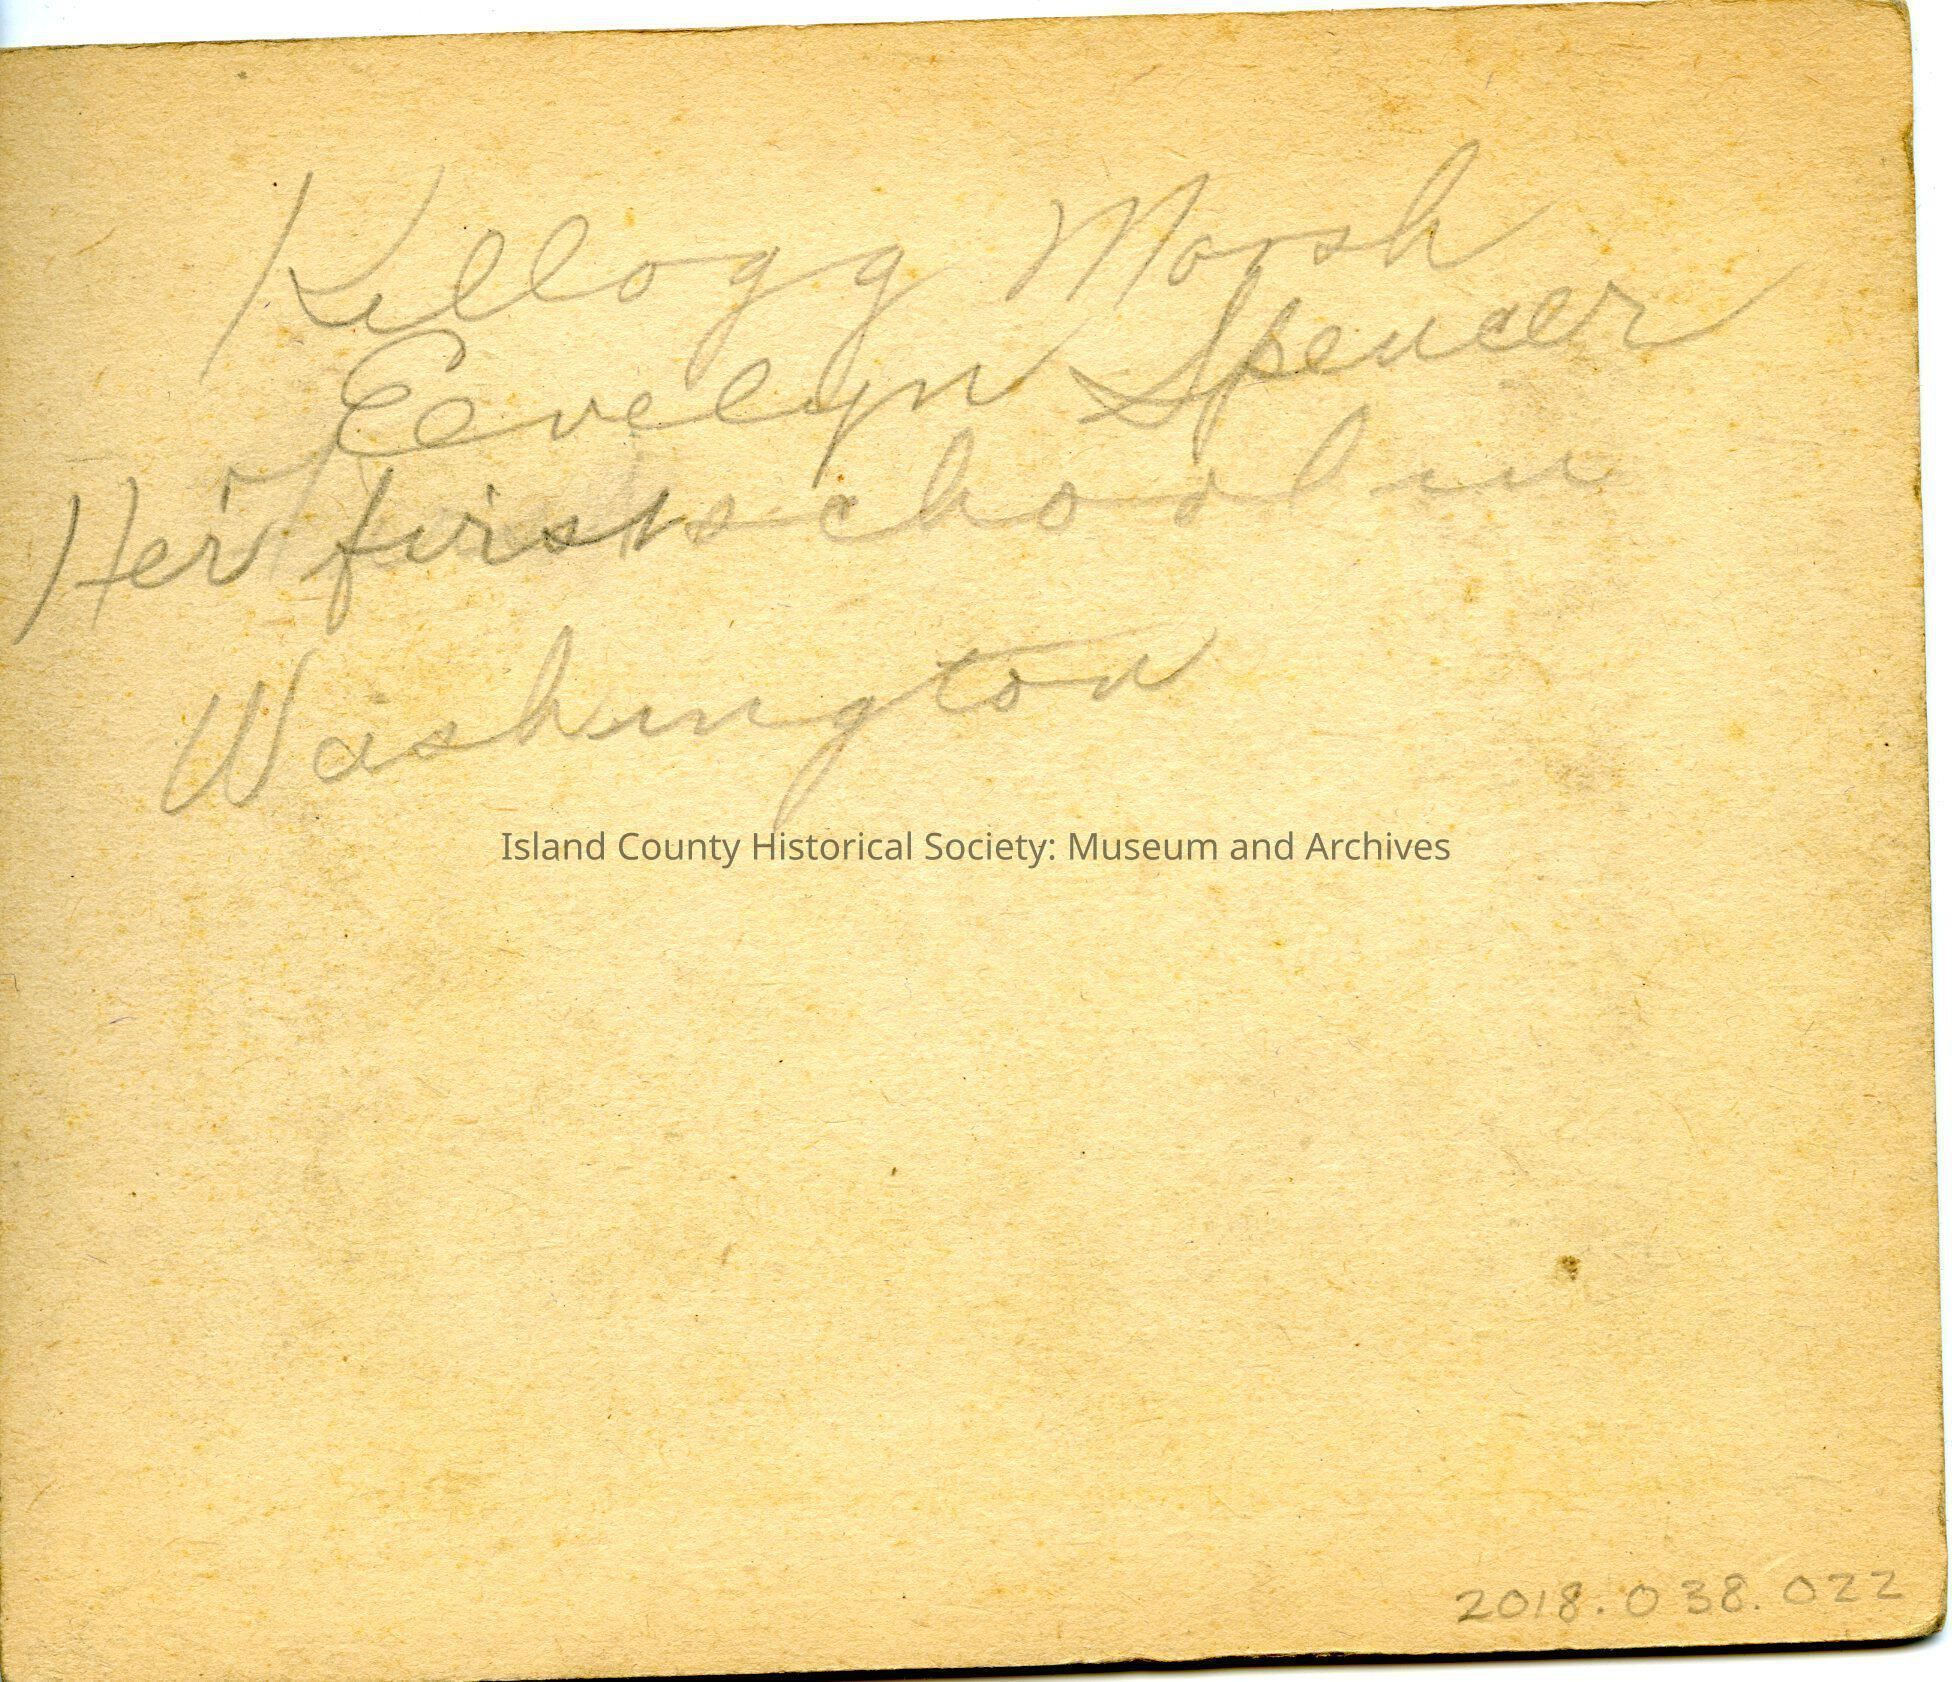 Kellogg Marsh
Eevelyn Spencer
Her first school in
Washington
Island County Historical Society: Museum and Archives
2018.038.022